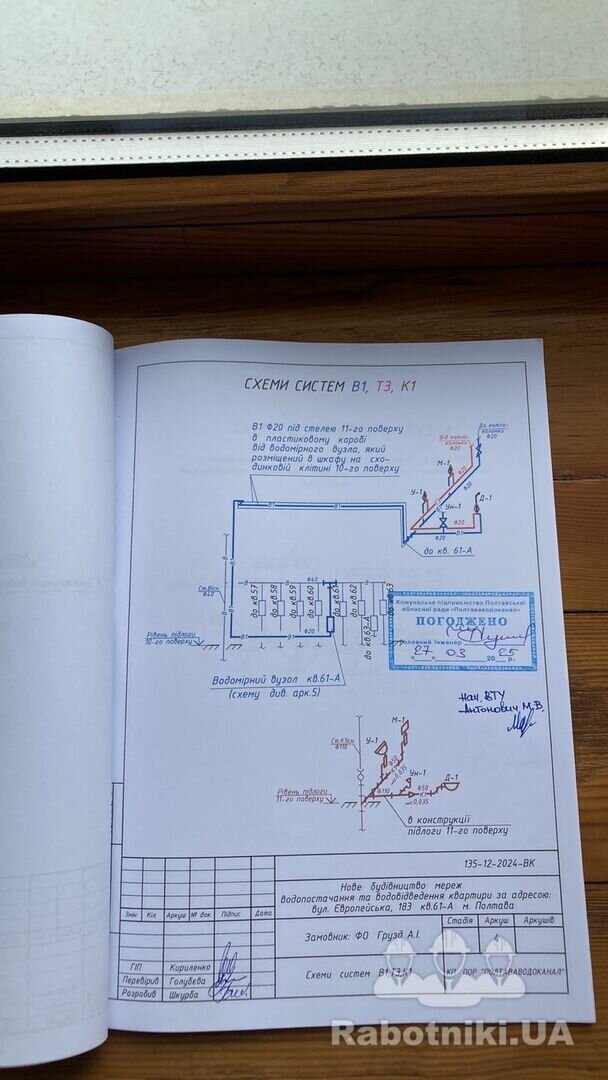 СХЕМИ СИСТЕМ В1, Т3, К1
В1 Ф20 під стелею 11-го поверху
в пластиковому коробі
від водомірного вузла, який
розміщений в шкафу на схо-
динковій клітині 10-го поверху
Від котла-
колонки
Ф20
До котла-
колонки
Ф20
М-1
У-1
Ун-1
Д-1
Ф20
Ф20
В1
Ф20
до кв. 61-А
В1
В1
Ст.В1сн
Ф40
В
Ф40
В
до кв.57
до кв.58
до кв.59
до кв.60
до кв.61
до кв.62
до кв.63-А
до кв.63
Рівень підлоги
10-го поверху
В1
В1
Ф20
Водомірний вузол кв.61-А
(схему див. арк.5)
Комунальне підприємство Полтавської
обласної ради «Полтававодоканал»
ПОГОДЖЕНО
Головний Інженер
27 03 2025 р.
Нач. ВТУ
Антонович М.В.
Ст.К1сн
Ф110
У-1
М-1
Ф50
К1
0,035
Ун-1
Д-1
Ф50
Ф110
К1
0,035
Рівень підлоги
11-го поверху
в конструкції
підлоги 11-го поверху
135-12-2024-ВК
Нове будівництво мереж
водопостачання та водовідведення квартири за адресою:
вул. Європейська, 183 кв.61-А м. Полтава
Змін Кіл. Аркуш № док. Підпис Дата
Замовник: ФО Грузд А.І.
Стадія Аркуш Аркушів
ГІП Кириленко
Перевірив Голубєва
Розробив Шкурба
Схеми систем В1,Т3,К1
КП ПОР "ПОЛТАВАВОДОКАНАЛ"
Rabotniki.UA